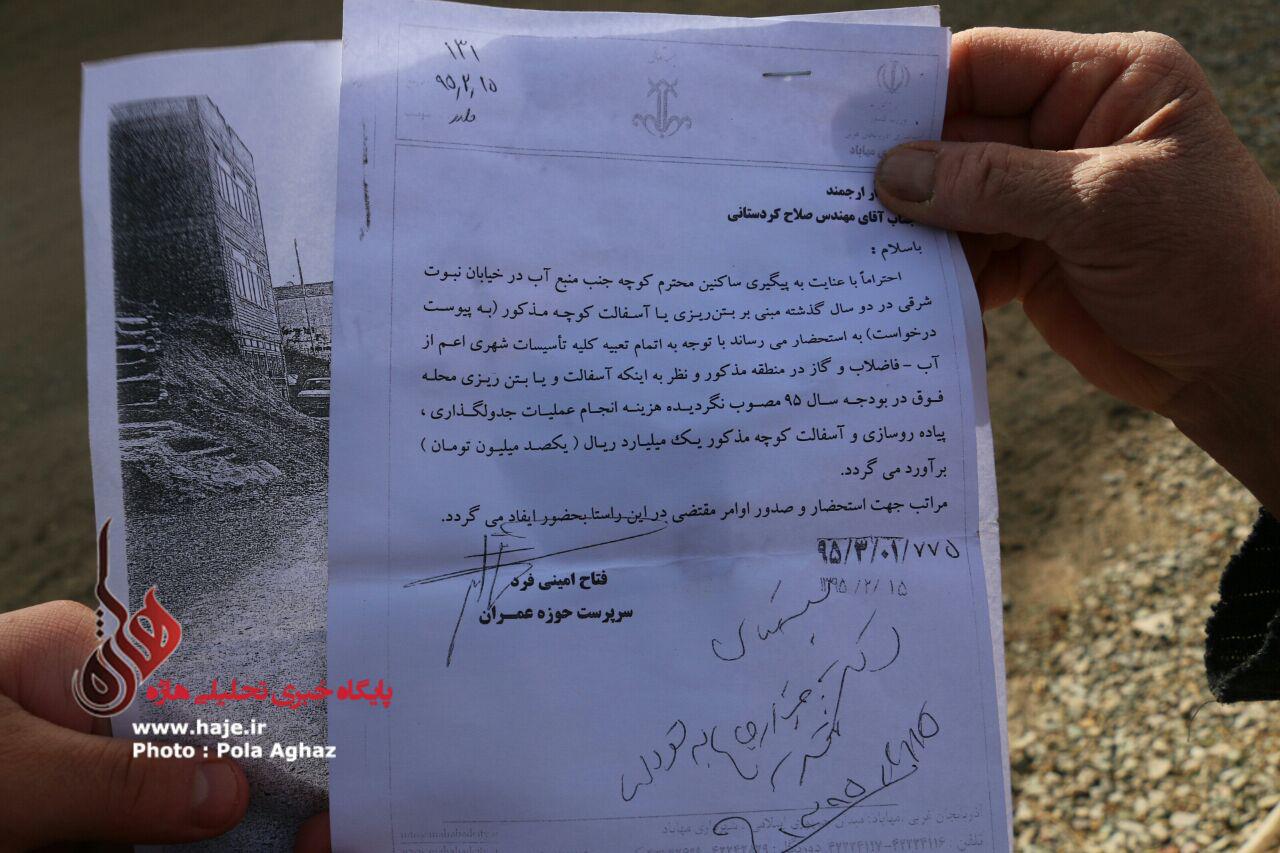 ۱۳۱
۹۵/۲/۱۵
مهاباد
ارجمند
جناب آقای مهندس صلاح کردستانی
باسلام :
احتراماً با عنایت به پیگیری ساکنین محترم کوچه جنب منبع آب در خیابان نبوت
شرقی در دو سال گذشته مبنی بر بتن‌ریزی یا آسفالت کوچه مذکور (به پیوست
درخواست) به استحضار می رساند با توجه به اتمام تعبیه کلیه تأسیسات شهری اعم از
آب - فاضلاب و گاز در منطقه مذکور و نظر به اینکه آسفالت و یا بتن ریزی محله
فوق در بودجه سال ۹۵ مصوب نگردیده هزینه انجام عملیات جدولگذاری ،
پیاده روسازی و آسفالت کوچه مذکور یک میلیارد ریال ( یکصد میلیون تومان )
برآورد می گردد.
مراتب جهت استحضار و صدور اوامر مقتضی در این راستا بحضور ایفاد می گردد.
۹۵/۳/۰۱/۷۷۵
۱۳۹۵/۲/۱۵
فتاح امینی فرد
سرپرست حوزه عمران
آذربایجان غربی ،مهاباد: میدان
مهاباد
هاژه
پایگاه خبری تحلیلی هاژه
www.haje.ir
Photo : Pola Aghaz